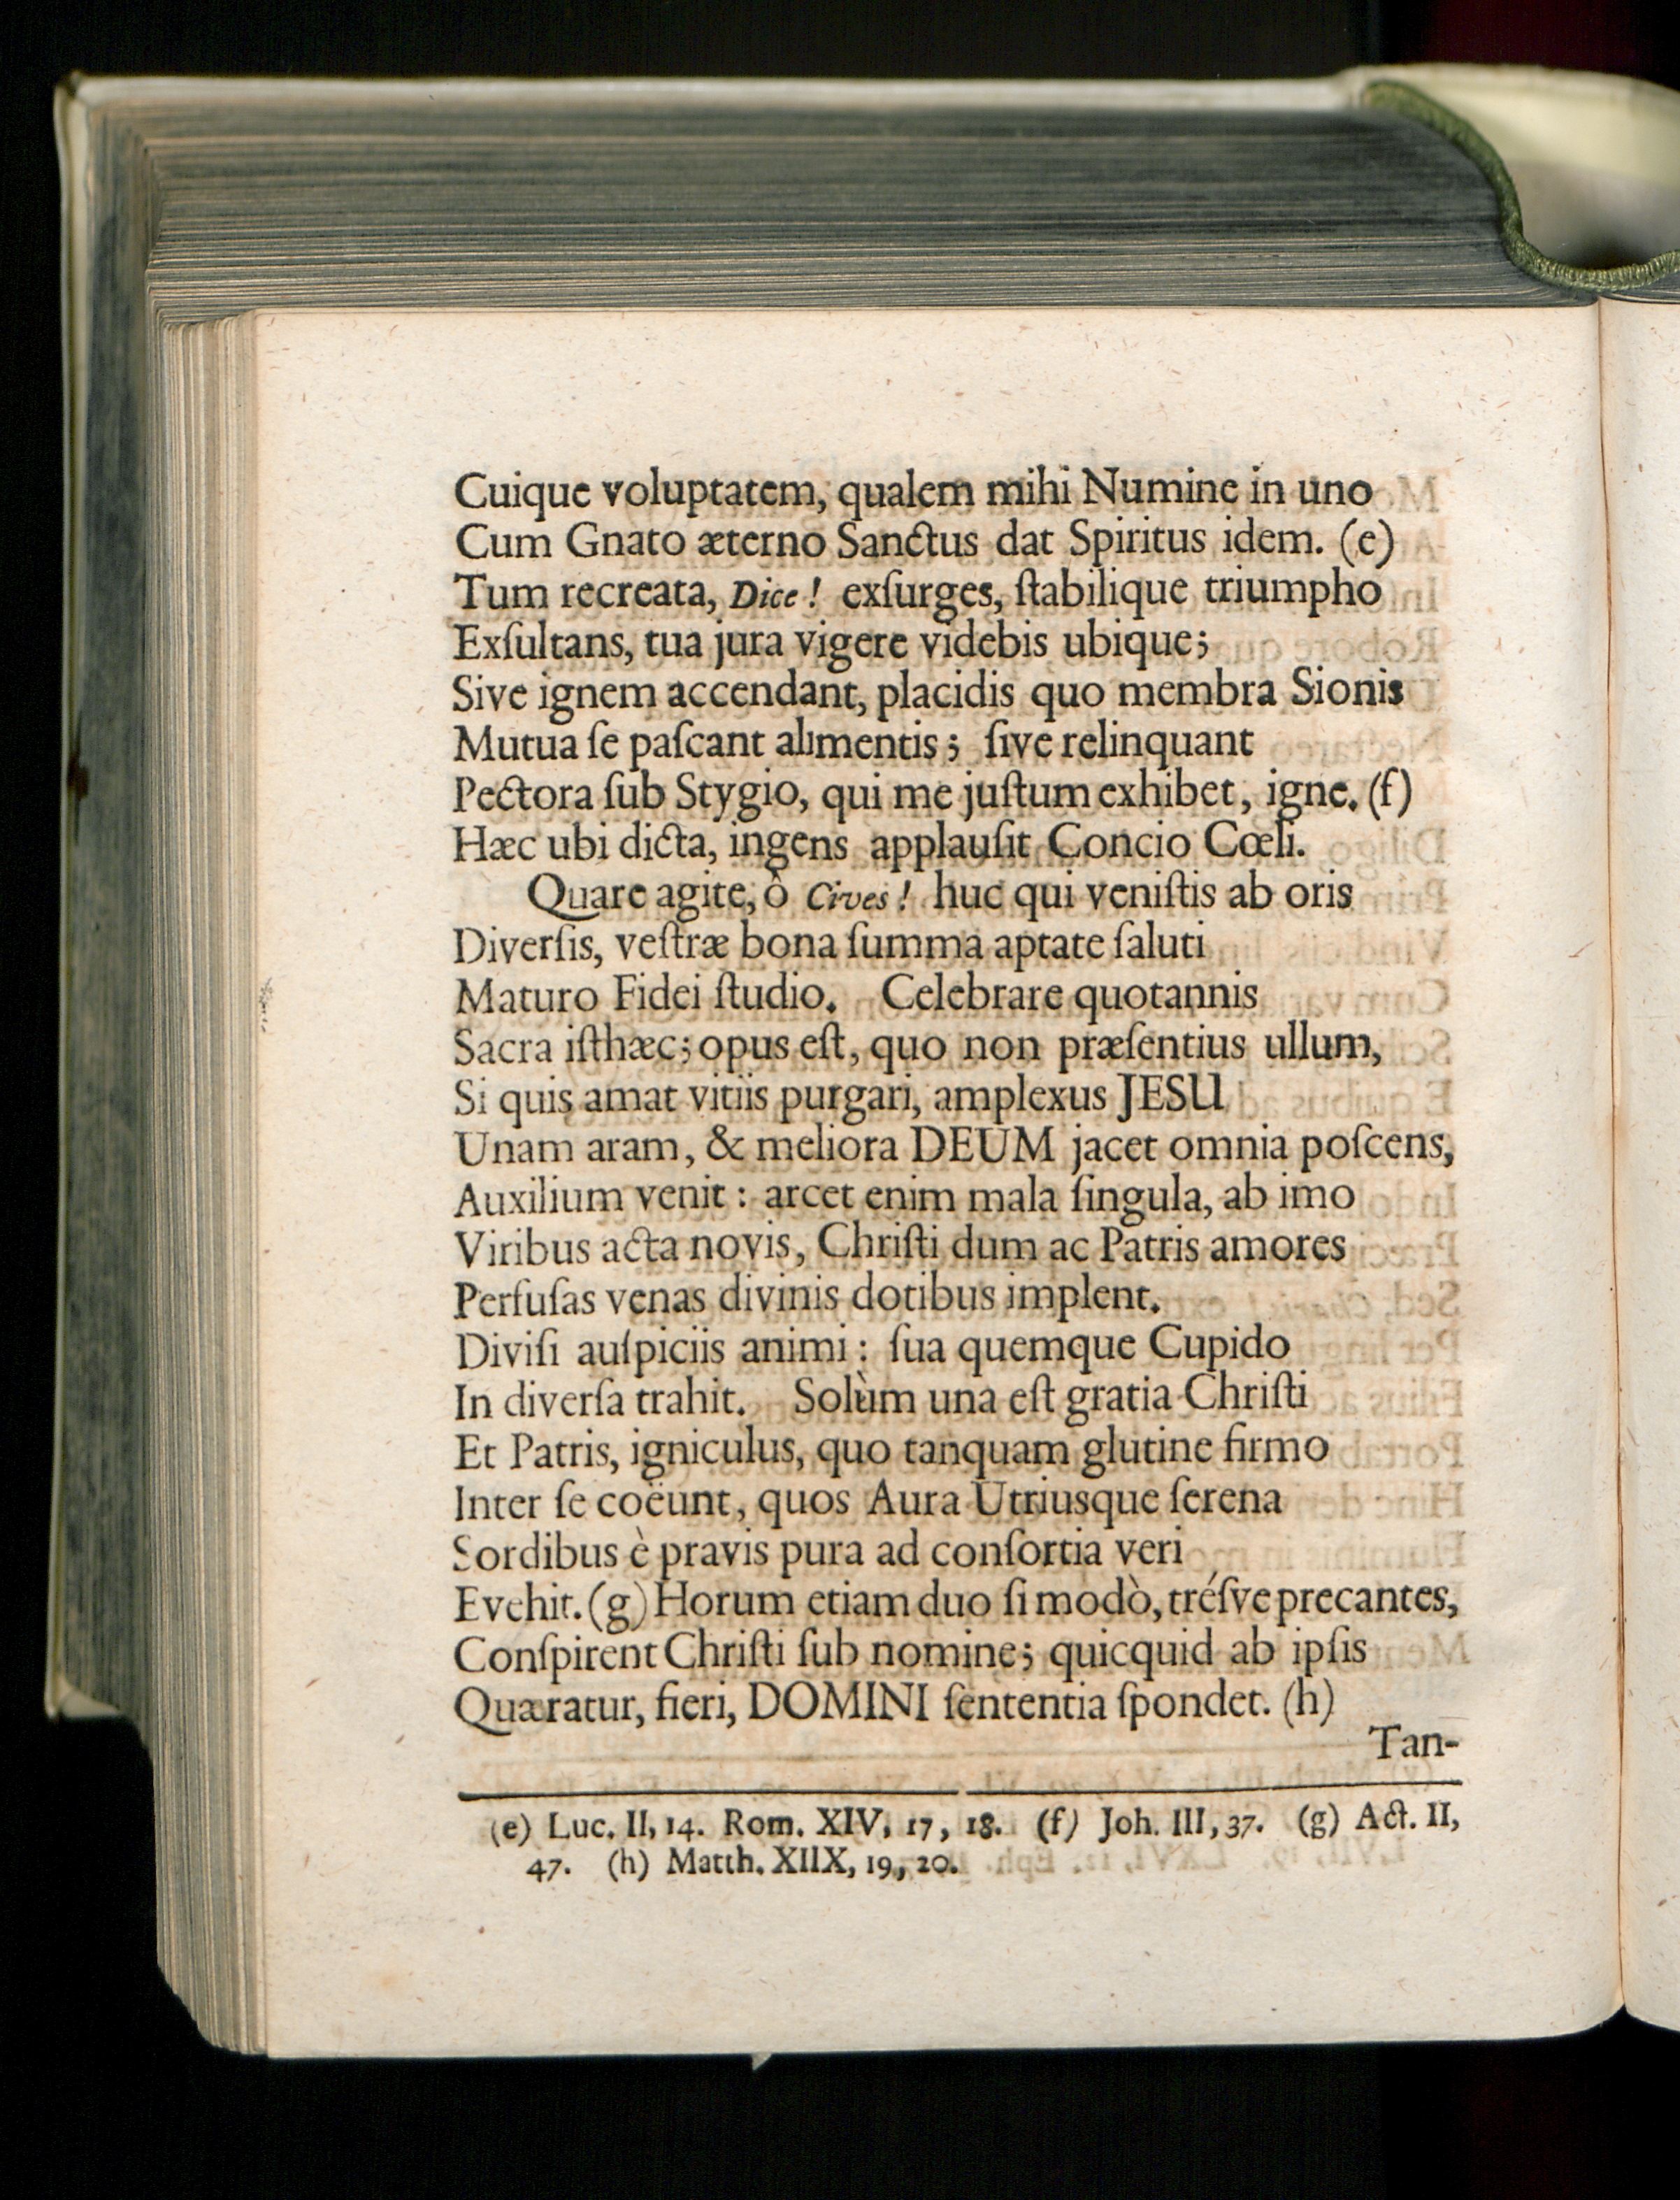 Cuique voluptatem, qualem mihi Numine in uno
Cum Gnato æterno Sanctus dat Spiritus idem. (e)
Tum recreata, Dice! exſurges, ſtabilique triumpho
Exſultans, tua jura vigere videbis ubique;
Sive ignem accendant, placidis quo membra Sionis
Mutua ſe paſcant alimentis; ſive relinquant
Pectora ſub Stygio, qui me juſtum exhibet, igne. (f)
Hæc ubi dicta, ingens applauſit Concio Cœli.
Quare agite, ô Cives! huc qui veniſtis ab oris
Diverſis, veſtræ bona ſumma aptate ſaluti
Maturo Fidei ſtudio. Celebrare quotannis
Sacra iſthæc; opus eſt, quo non præſentius ullum,
Si quis amat vitiis purgari, amplexus JESU
Unam aram, & meliora DEUM jacet omnia poſcens,
Auxilium venit: arcet enim mala ſingula, ab imo
Viribus acta novis, Chriſti dum ac Patris amores
Perfuſas venas divinis dotibus implent.
Diviſi auſpiciis animi: ſua quemque Cupido
In diverſa trahit. Solùm una eſt gratia Chriſti
Et Patris, igniculus, quo tanquam glutine firmo
Inter ſe coëunt, quos Aura Utriusque ſerena
Sordibus è pravis pura ad conſortia veri
Evehit. (g) Horum etiam duo ſi modò, tréſve precantes,
Conſpirent Chriſti ſub nomine; quicquid ab ipſis
Quæratur, fieri, DOMINI ſententia ſpondet. (h)
Tan-
(e) Luc. II, 14. Rom. XIV, 17, 18. (f) Joh. III, 37. (g) Act. II,
47. (h) Matth. XIIX, 19, 20.